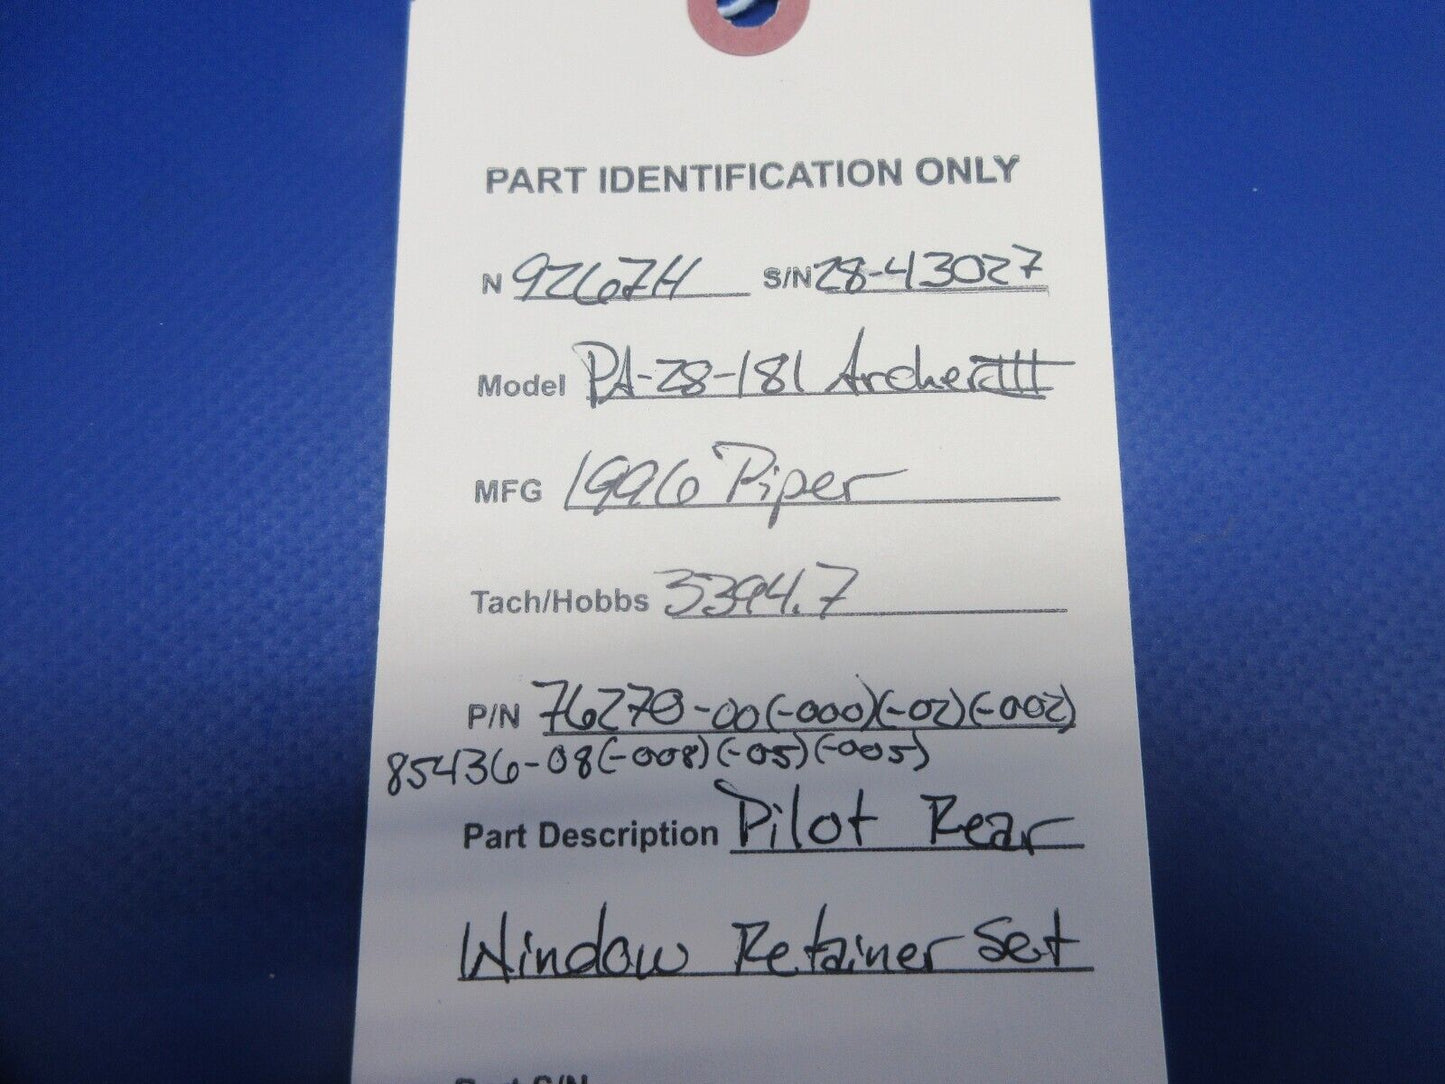 PART IDENTIFICATION ONLY
N 9267H S/N 28-43027
Model PA-28-181 Archer III
MFG 1996 Piper
Tach/Hobbs 3394.7
P/N 76270-00(-000)(-02)(-002)
85436-08(-008)(-05)(-005)
Part Description Pilot Rear
Window Retainer Set